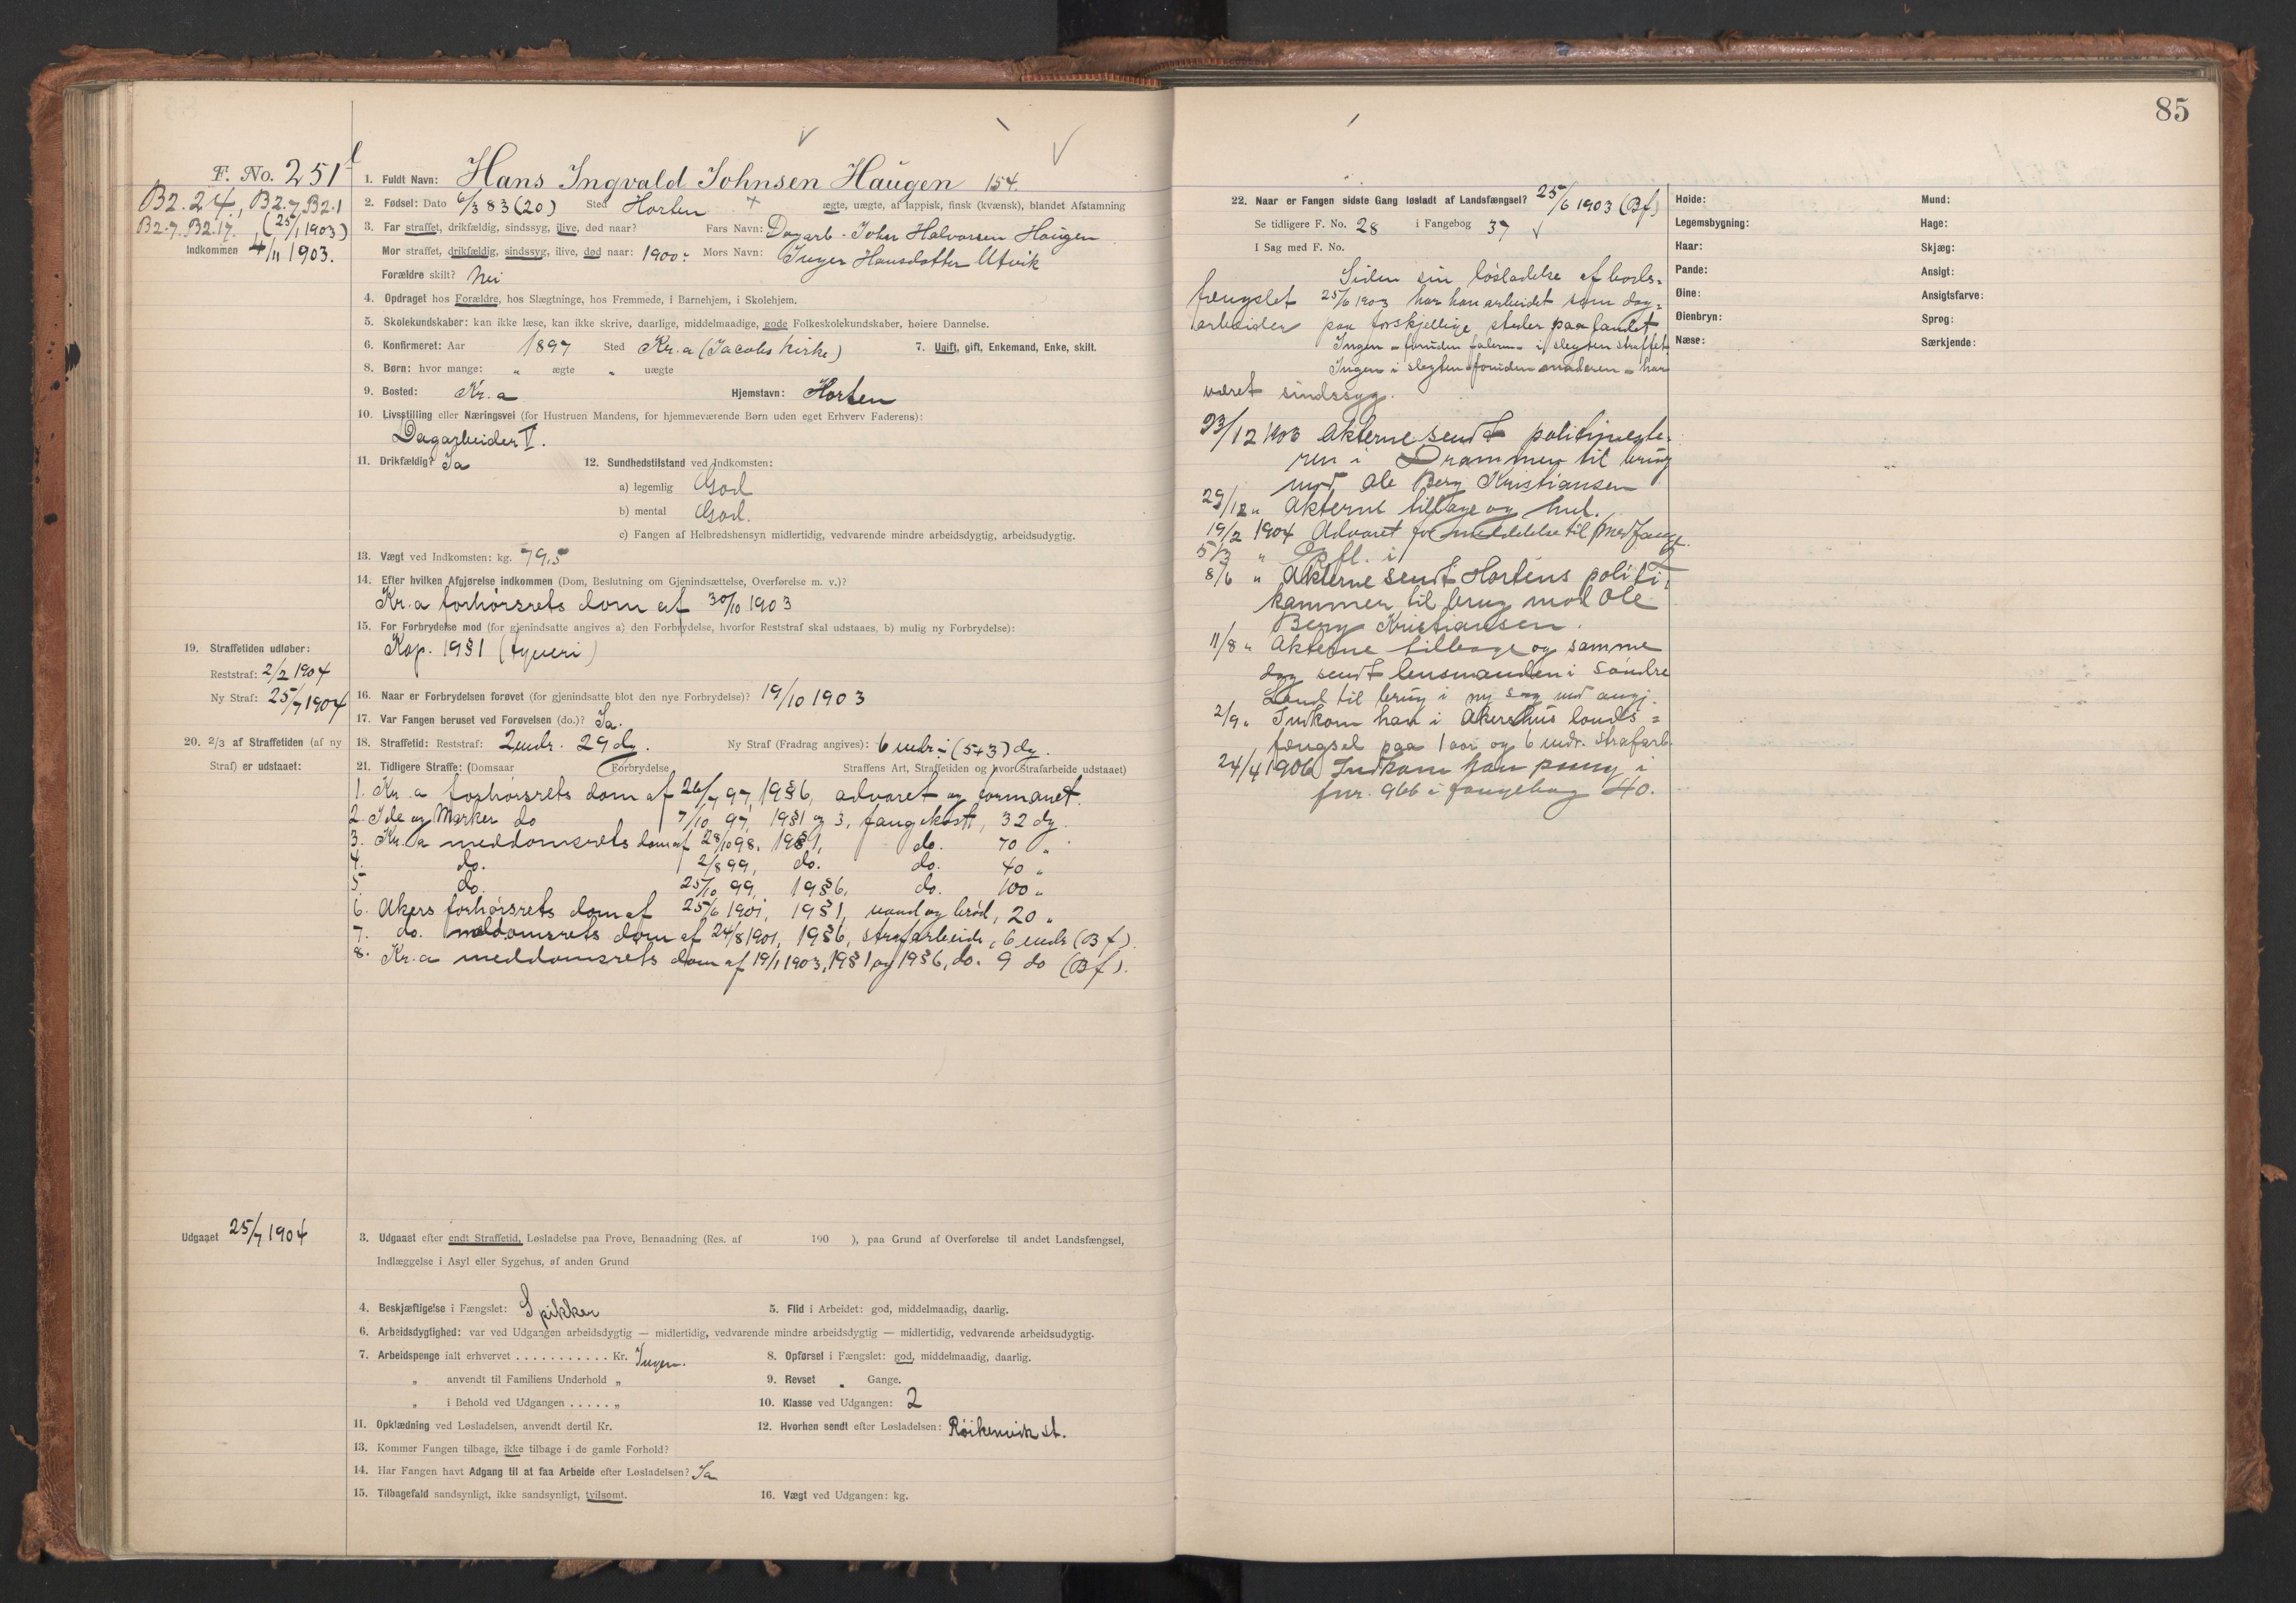 85
F. No. 251 f
B2.24, B2.7, B2.1
B2.7. B2.17. (25/1 1903)
Indkommen 4/11 1903.
1. Fuldt Navn: Hans Ingvald Johnsen Haugen 154.
2. Fødsel: Dato 6/3 83 (20) Sted Horten + ægte, uægte, af lappisk, finsk (kvænsk), blandet Afstamning
3. Far straffet, drikfældig, sindssyg, ilive, død naar? Fars Navn: Dagarb. John Halvorsen Haugen
Mor straffet, drikfældig, sindssyg, ilive, død naar: 1900. Mors Navn: Inger Hansdatter Utvik
Forældre skilt? Nei
4. Opdraget hos Forældre, hos Slægtninge, hos Fremmede, i Barnehjem, i Skolehjem.
5. Skolekundskaber: kan ikke læse, kan ikke skrive, daarlige, middelmaadige, gode Folkeskolekundskaber, høiere Dannelse.
6. Konfirmeret: Aar 1897 Sted Kr.a (Jacobs kirke) 7. Ugift, gift, Enkemand, Enke, skilt.
8. Børn: hvor mange: " ægte " uægte
9. Bosted: Kr.a Hjemstavn: Horten
10. Livsstilling eller Næringsvei (for Hustruen Mandens, for hjemmeværende Børn uden eget Erhverv Faderens):
Dagarbeider V.
11. Drikfældig? Ja 12. Sundhedstilstand ved Indkomsten:
a) legemlig God
b) mental God.
c) Fangen af Helbredshensyn midlertidig, vedvarende mindre arbeidsdygtig, arbeidsudygtig.
13. Vægt ved Indkomsten: kg. 79,5
14. Efter hvilken Afgjørelse indkommen (Dom, Beslutning om Gjenindsættelse, Overførelse m. v.)?
Kr.a forhørsrets dom af 30/10 1903
15. For Forbrydelse mod (for gjenindsatte angives a) den Forbrydelse, hvorfor Reststraf skal udstaaes, b) mulig ny Forbrydelse):
Kap. 19 § 1 (tyveri)
19. Straffetiden udløber:
Reststraf: 2/2 1904
Ny Straf: 25/7 1904
16. Naar er Forbrydelsen forøvet (for gjenindsatte blot den nye Forbrydelse)? 19/10 1903
17. Var Fangen beruset ved Forøvelsen (do.)? Ja.
20. 2/3 af Straffetiden (af ny Straf) er udstaaet:
18. Straffetid: Reststraf: 2 mdr. 29 dg. Ny Straf (Fradrag angives): 6 mdr ÷ (5+3) dg.
21. Tidligere Straffe: (Domsaar Forbrydelse Straffens Art, Straffetiden og hvor Strafarbeide udstaaet)
1. Kr.a forhørsrets dom af 26/7 97, 19 § 6, advaret og formanet.
2. Ide og Marker do 7/10 97, 19 § 1 og 3, fangekost, 32 dg.
3. Kr.a meddomsrets dom af 28/10 98, 19 § 1, do. 70 "
4. do. 2/8 99, do. do. 40 "
5. do. 25/10 99, 19 § 6, do. 100 "
6. Akers forhørsrets dom af 25/6 1901, 19 § 1, vand og brød, 20 "
7. do. meddomsrets dom af 24/8 1901, 19 § 6, strafarbeide, 6 mdr (Bf).
8. Kr.a meddomsrets dom af 19/1 1903, 19 § 1 og 19 § 6, do. 9 do (Bf).
Udgaaet 25/7 1904
3. Udgaaet efter endt Straffetid, Løsladelse paa Prøve, Benaadning (Res. af 190 ), paa Grund af Overførelse til andet Landsfængsel,
Indlæggelse i Asyl eller Sygehus, af anden Grund
4. Beskjæftigelse i Fængslet: Spikker 5. Flid i Arbeidet: god, middelmaadig, daarlig.
6. Arbeidsdygtighed: var ved Udgangen arbeidsdygtig — midlertidig, vedvarende mindre arbeidsdygtig — midlertidig, vedvarende arbeidsudygtig.
7. Arbeidspenge ialt erhvervet . . . . . . . . . . . Kr. Ingen. 8. Opførsel i Fængslet: god, middelmaadig, daarlig.
" anvendt til Familiens Underhold " 9. Revset " Gange.
" i Behold ved Udgangen . . . . . " 10. Klasse ved Udgangen: 2
11. Opklædning ved Løsladelsen, anvendt dertil Kr. 12. Hvorhen sendt efter Løsladelsen: Røikenvik st.
13. Kommer Fangen tilbage, ikke tilbage i de gamle Forhold?
14. Har Fangen havt Adgang til at faa Arbeide efter Løsladelsen? Ja
15. Tilbagefald sandsynligt, ikke sandsynligt, tvilsomt. 16. Vægt ved Udgangen: kg.
22. Naar er Fangen sidste Gang løsladt af Landsfængsel? 25/6 1903 (Bf)
Se tidligere F. No. 28 i Fangebog 37
I Sag med F. No.
Siden sin løsladelse af bods-
fængslet 25/6 1903 har han arbeidet som dag-
arbeider paa forskjellige steder paa landet
Ingen - foruden faderen - i slegten straffet.
Ingen i slegten - foruden moderen - har
været sindssyg.
23/12 1903 Akterne sendt politimeste-
ren i Drammen til brug
mod Ole Berg Kristiansen
29/12 " Akterne tilbage og hul.
19/2 1904 Advaret for meddelelse til medfange.
5/3 " Opfl. i 2
8/6 " Akterne sendt Hortens politi-
kammer til brug mod Ole
Berg Kristiansen.
11/8 " Akterne tilbage og samme
dag sendt lensmanden i Søndre
Land til brug i ny sag mod angj.
2/9 " Indkom han i Akershus lands-
fængsel paa 1 aar og 6 mdr. strafarb.
24/4 1906 Indkom han paany i
fnr. 966 i fangebog 40.
Høide:
Legemsbygning:
Haar:
Pande:
Øine:
Øienbryn:
Næse:
Mund:
Hage:
Skjæg:
Ansigt:
Ansigtsfarve:
Sprog:
Særkjende: